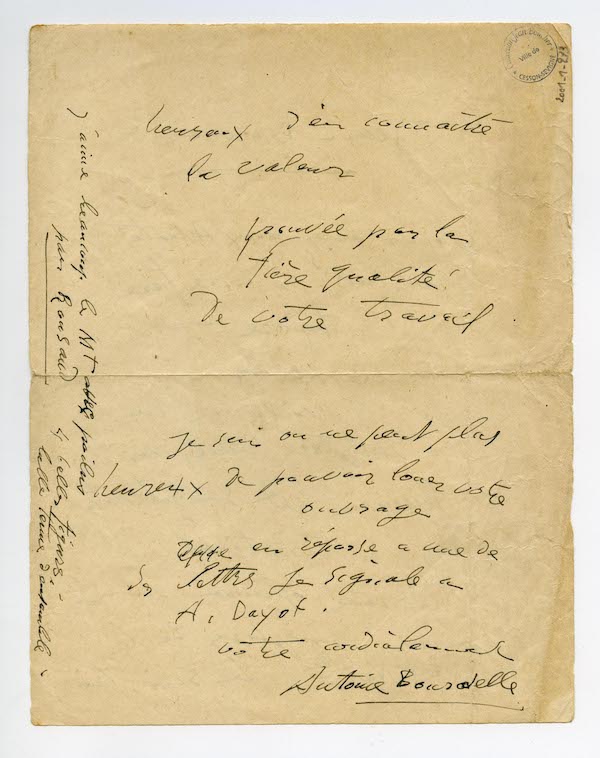 heureux d'en connaître
la valeur
prouvée par la
fière qualité
De votre travail
je suis on ne peut plus
heureux de pouvoir louer votre
ouvrage
en réponse a une de
ses lettres je signale a
A. Dayot.
votre cordialement
Antoine Bourdelle
J'aime beaucoup le Mt poilus
pour Ronsard
4 belles figures.
belle tenue d'ensemble.
Ville de
CESSON-SÉVIGNÉ
2001-1-273